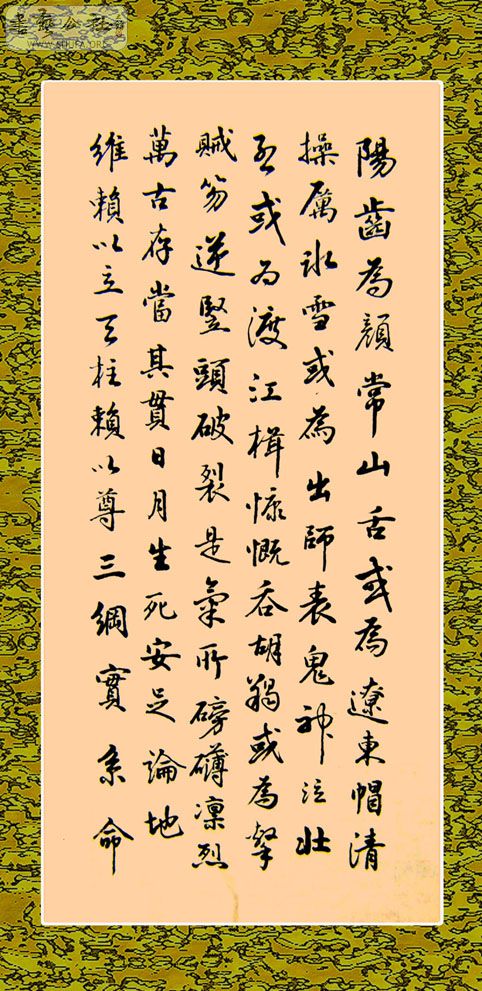 陽齒為顏常山舌或為遼東帽清
操厲冰雪或為出師表鬼神泣壯
烈或為渡江楫慷慨吞胡羯或為擊
賊笏逆豎頭破裂是氣所磅礴凜烈
萬古存當其貫日月生死安足論地
維賴以立天柱賴以尊三綱實系命
書藝公社
WWW.SHUFA.ORG